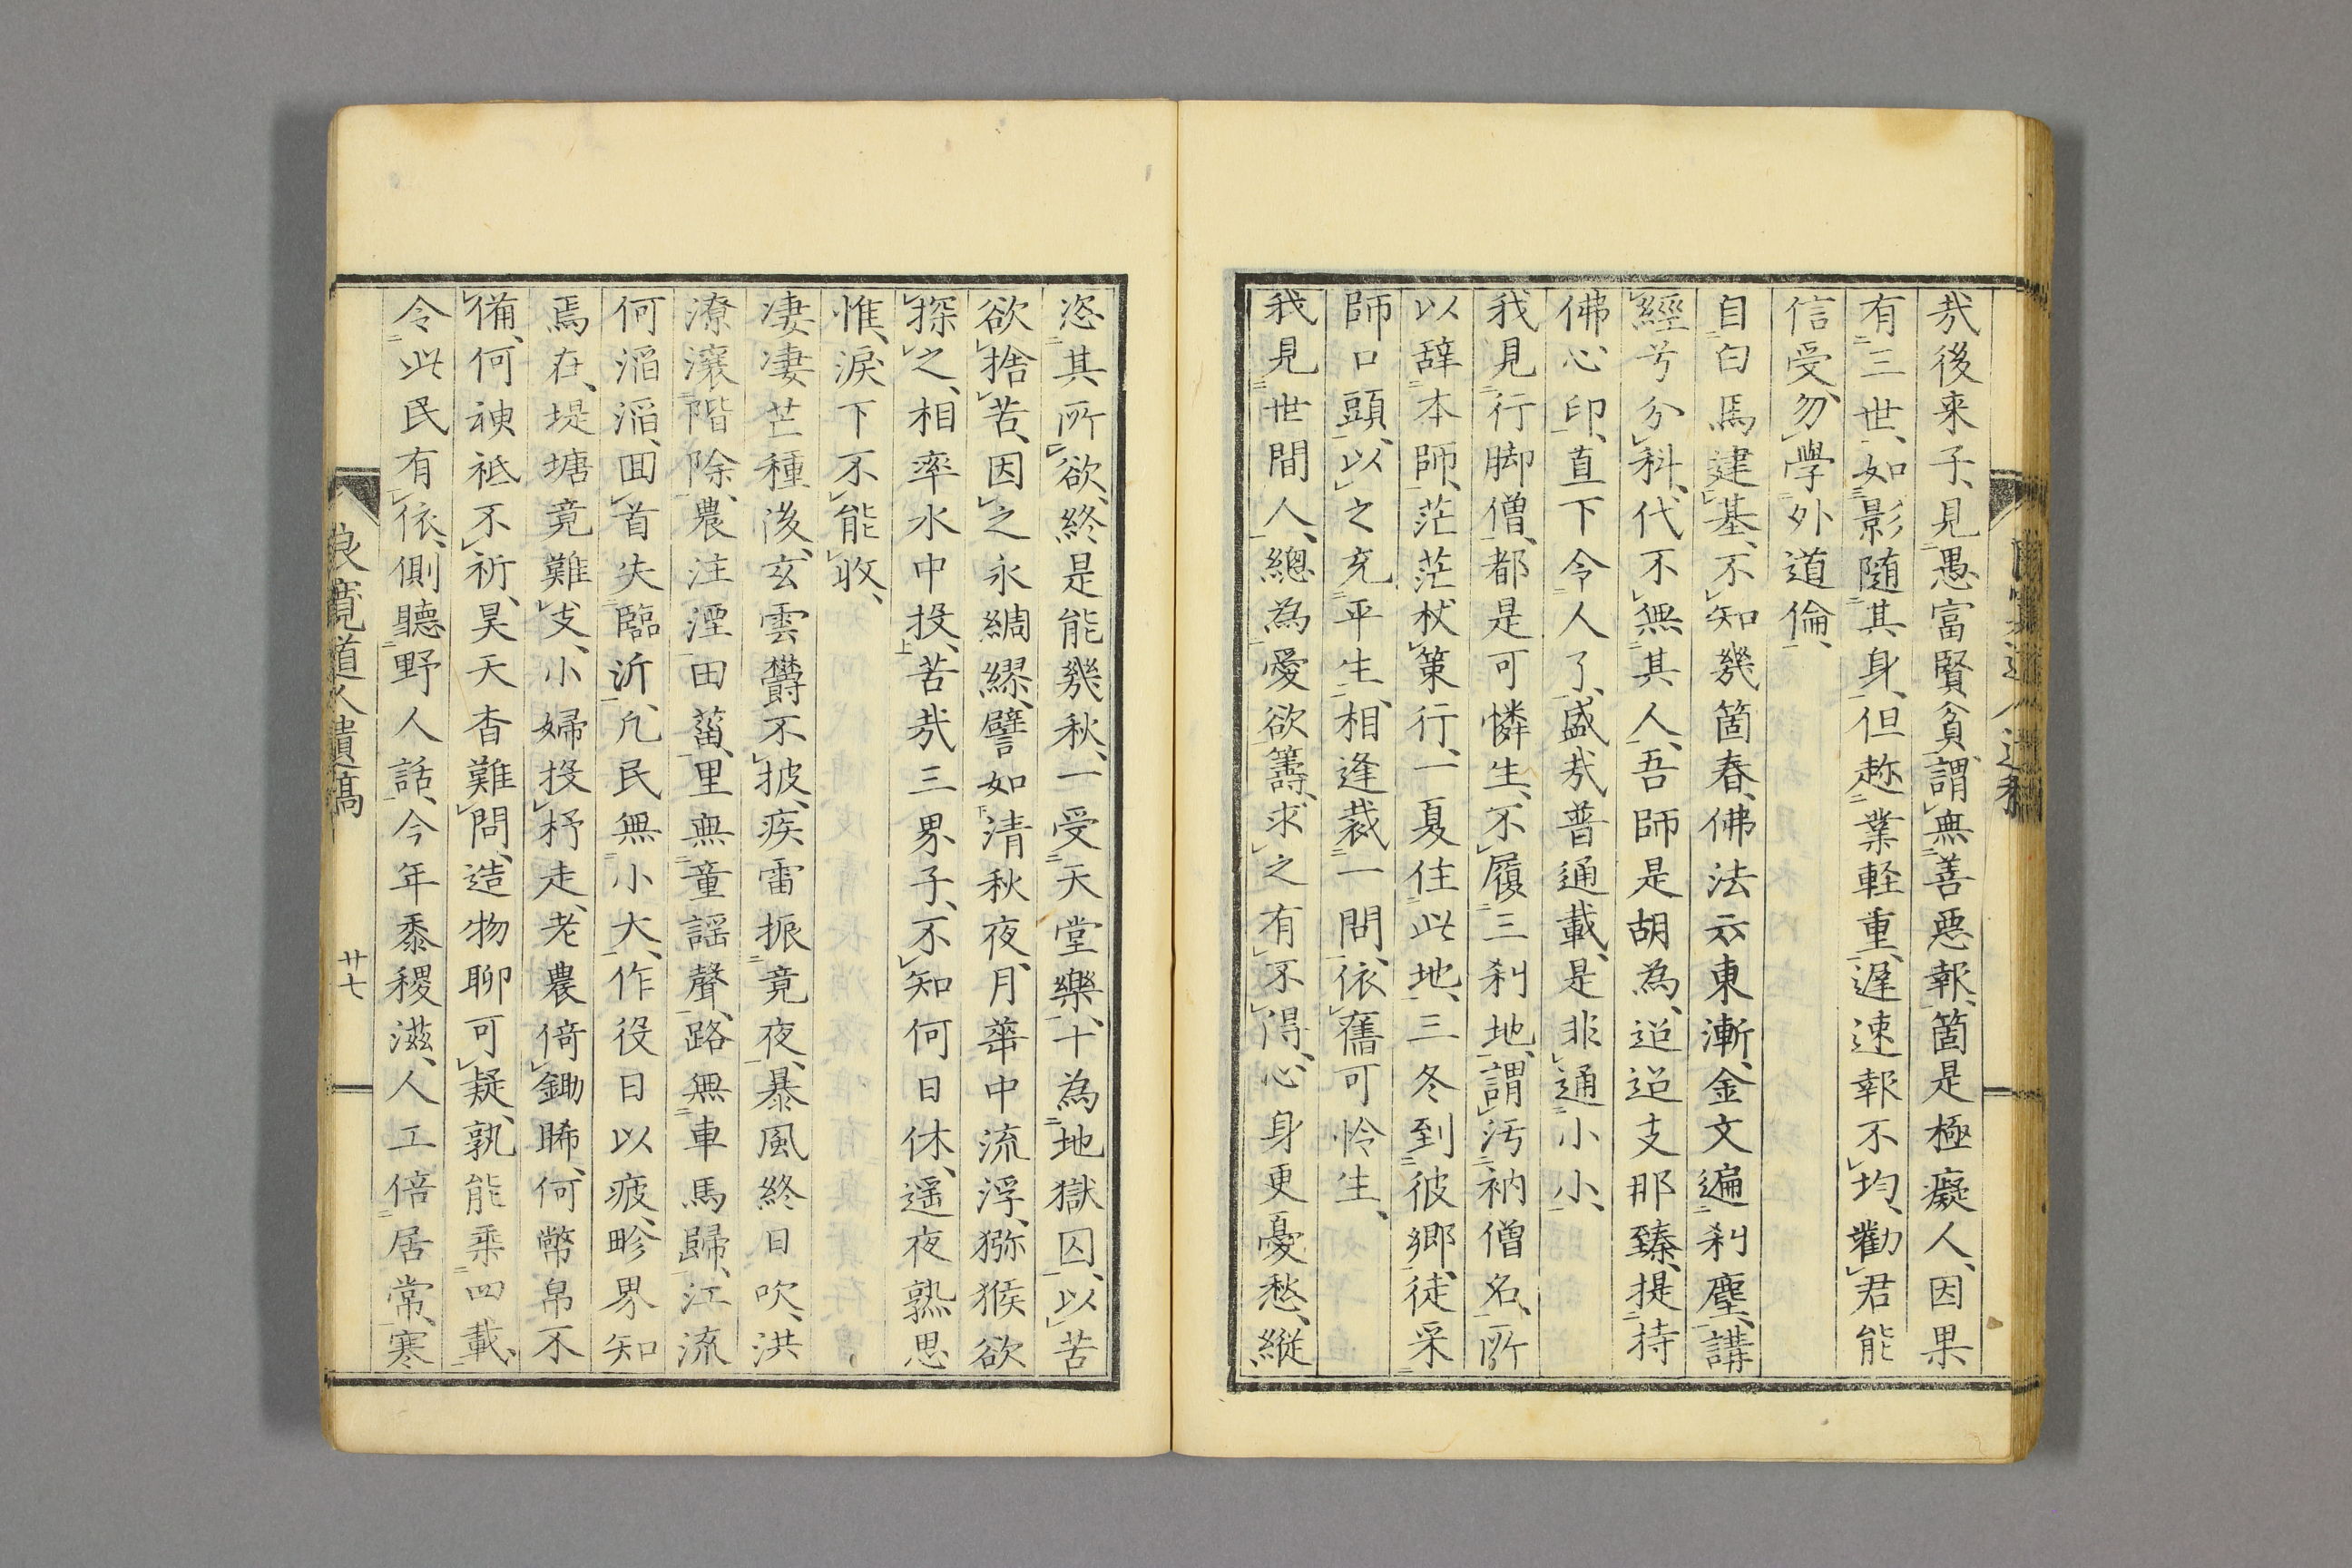 哉後来子、見愚富賢貧、謂無善悪報、箇是極癡人、因果
有三世、如影随其身、但趂業軽重、遅速報不均、勸君能
信受、勿學外道倫、
自白馬建基、不知幾箇春、佛法云東漸、金文遍刹塵、講
經兮分科、代不無其人、吾師是胡為、迢迢支那臻、提持
佛心印、直下令人了、盛哉普通載、是非通小小、
我見行脚僧、都是可憐生、不履三刹地、謂汚衲僧名、所
以辞本師、茫茫杖策行、一夏住此地、三冬到彼郷、徒采
師口頭、以之充平生、相逢裁一問、依舊可怜生、
我見世間人、總為愛欲籌、求之有不得、心身更憂愁、縦
恣其所欲、終是能幾秋、一受天堂樂、十為地獄囚、以苦
欲捨苦、因之永綢繆、譬如清秋夜、月華中流浮、猕猴欲
探之、相率水中投、苦哉三界子、不知何日休、遥夜熟思
惟、涙下不能收、
凄凄芒種後、玄雲欝不披、疾雷振竟夜、暴風終日吹、洪
潦瀼階除、農注湮田菑、里無童謡聲、路無車馬歸、江流
何滔滔、回首失臨沂、凡民無小大、作役日以疲、畛界知
焉在、堤塘竟難支、小婦投杼走、老農倚鋤睎、何幣帛不
備、何神祗不祈、昊天杳難問、造物聊可疑、孰能乗四載、
令此民有依、側聽野人話、今年黍稷滋、人工倍居常、寒
良寛道人遺稿
廿七